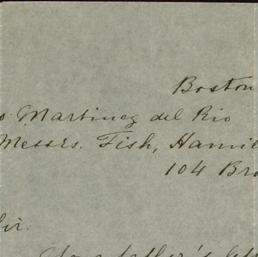 Boston
o Martinez del Rio
Messrs. Fish, Hamil
104 Bro
Sir.